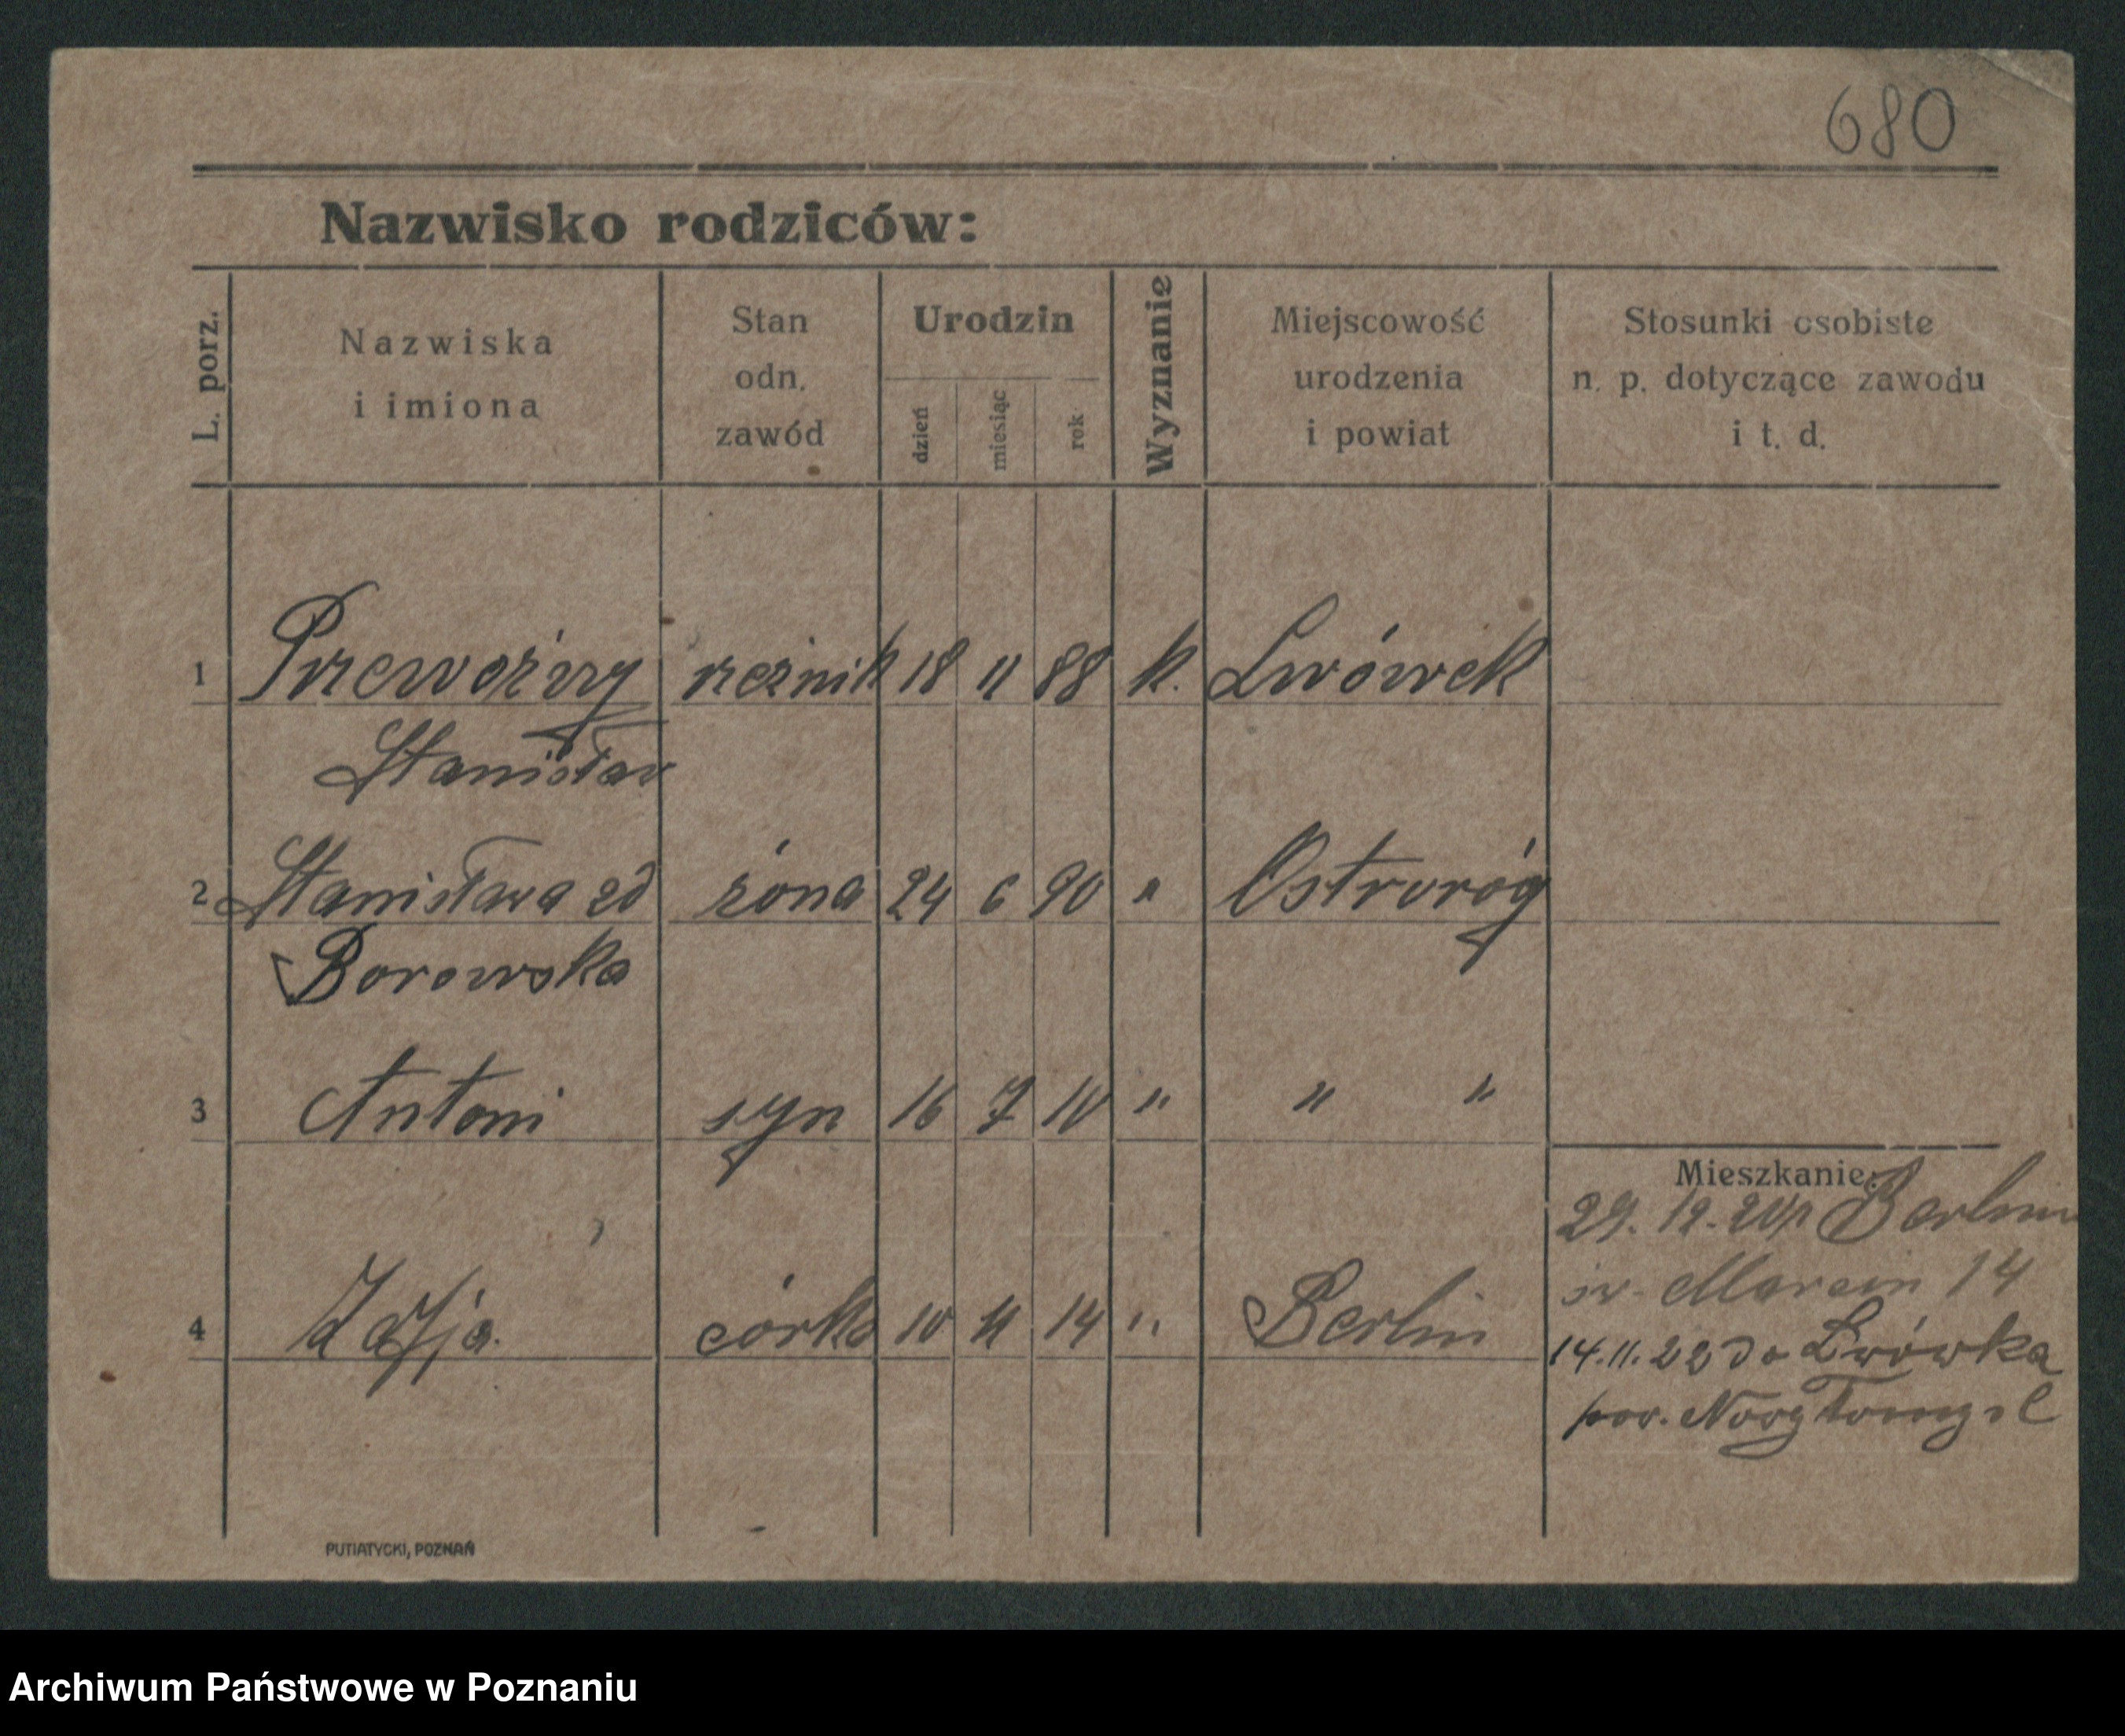 680
Nazwisko rodziców:
L. porz.
Nazwiska
i imiona
Stan
odn.
zawód
Urodzin
dzień
miesiąc
rok
Wyznanie
Miejscowość
urodzenia
i powiat
Stosunki osobiste
n. p. dotyczące zawodu
i t. d.
1 Przewoźny rzeźnik 18 11 88 k. Lwówek
Stanisław
2 Stanisława zd żona 24 6 90 " Ostroróg
Borowska
3 Antoni syn 16 7 10 " " "
4 Zofja córka 10 11 14 " Berlin
Mieszkanie:
29. 12. Berlin
św. Marcin 14
14.11.22 do Lwówka
pow. Nowy Tomyśl
PUTIATYCKI, POZNAŃ
Archiwum Państwowe w Poznaniu